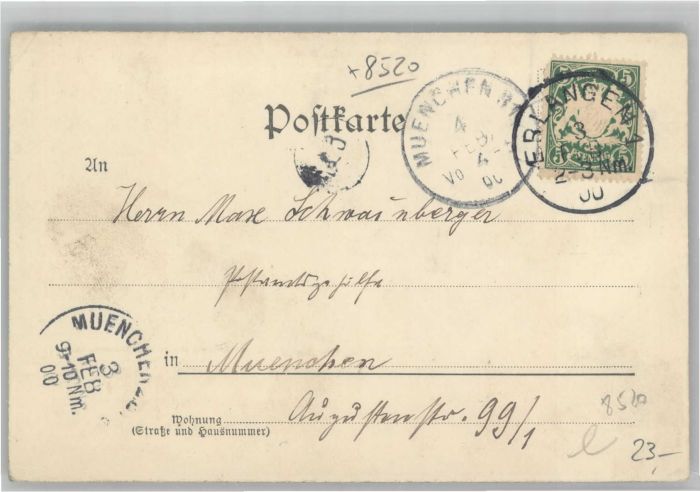 +8520
Postkarte
MUENCHEN
4
FEB
Vo 4
00
ERLANGEN 1
3
FEB
2-3 Nm.
00
5 5
An
Herrn Max Schwainberger
Postamtsgehilfe
MUENCHEN
3
FEB
9-10 Nm.
00
in Muenchen
Wohnung
(Straße und Hausnummer)
Augustenstr. 99/1
8520
23,-